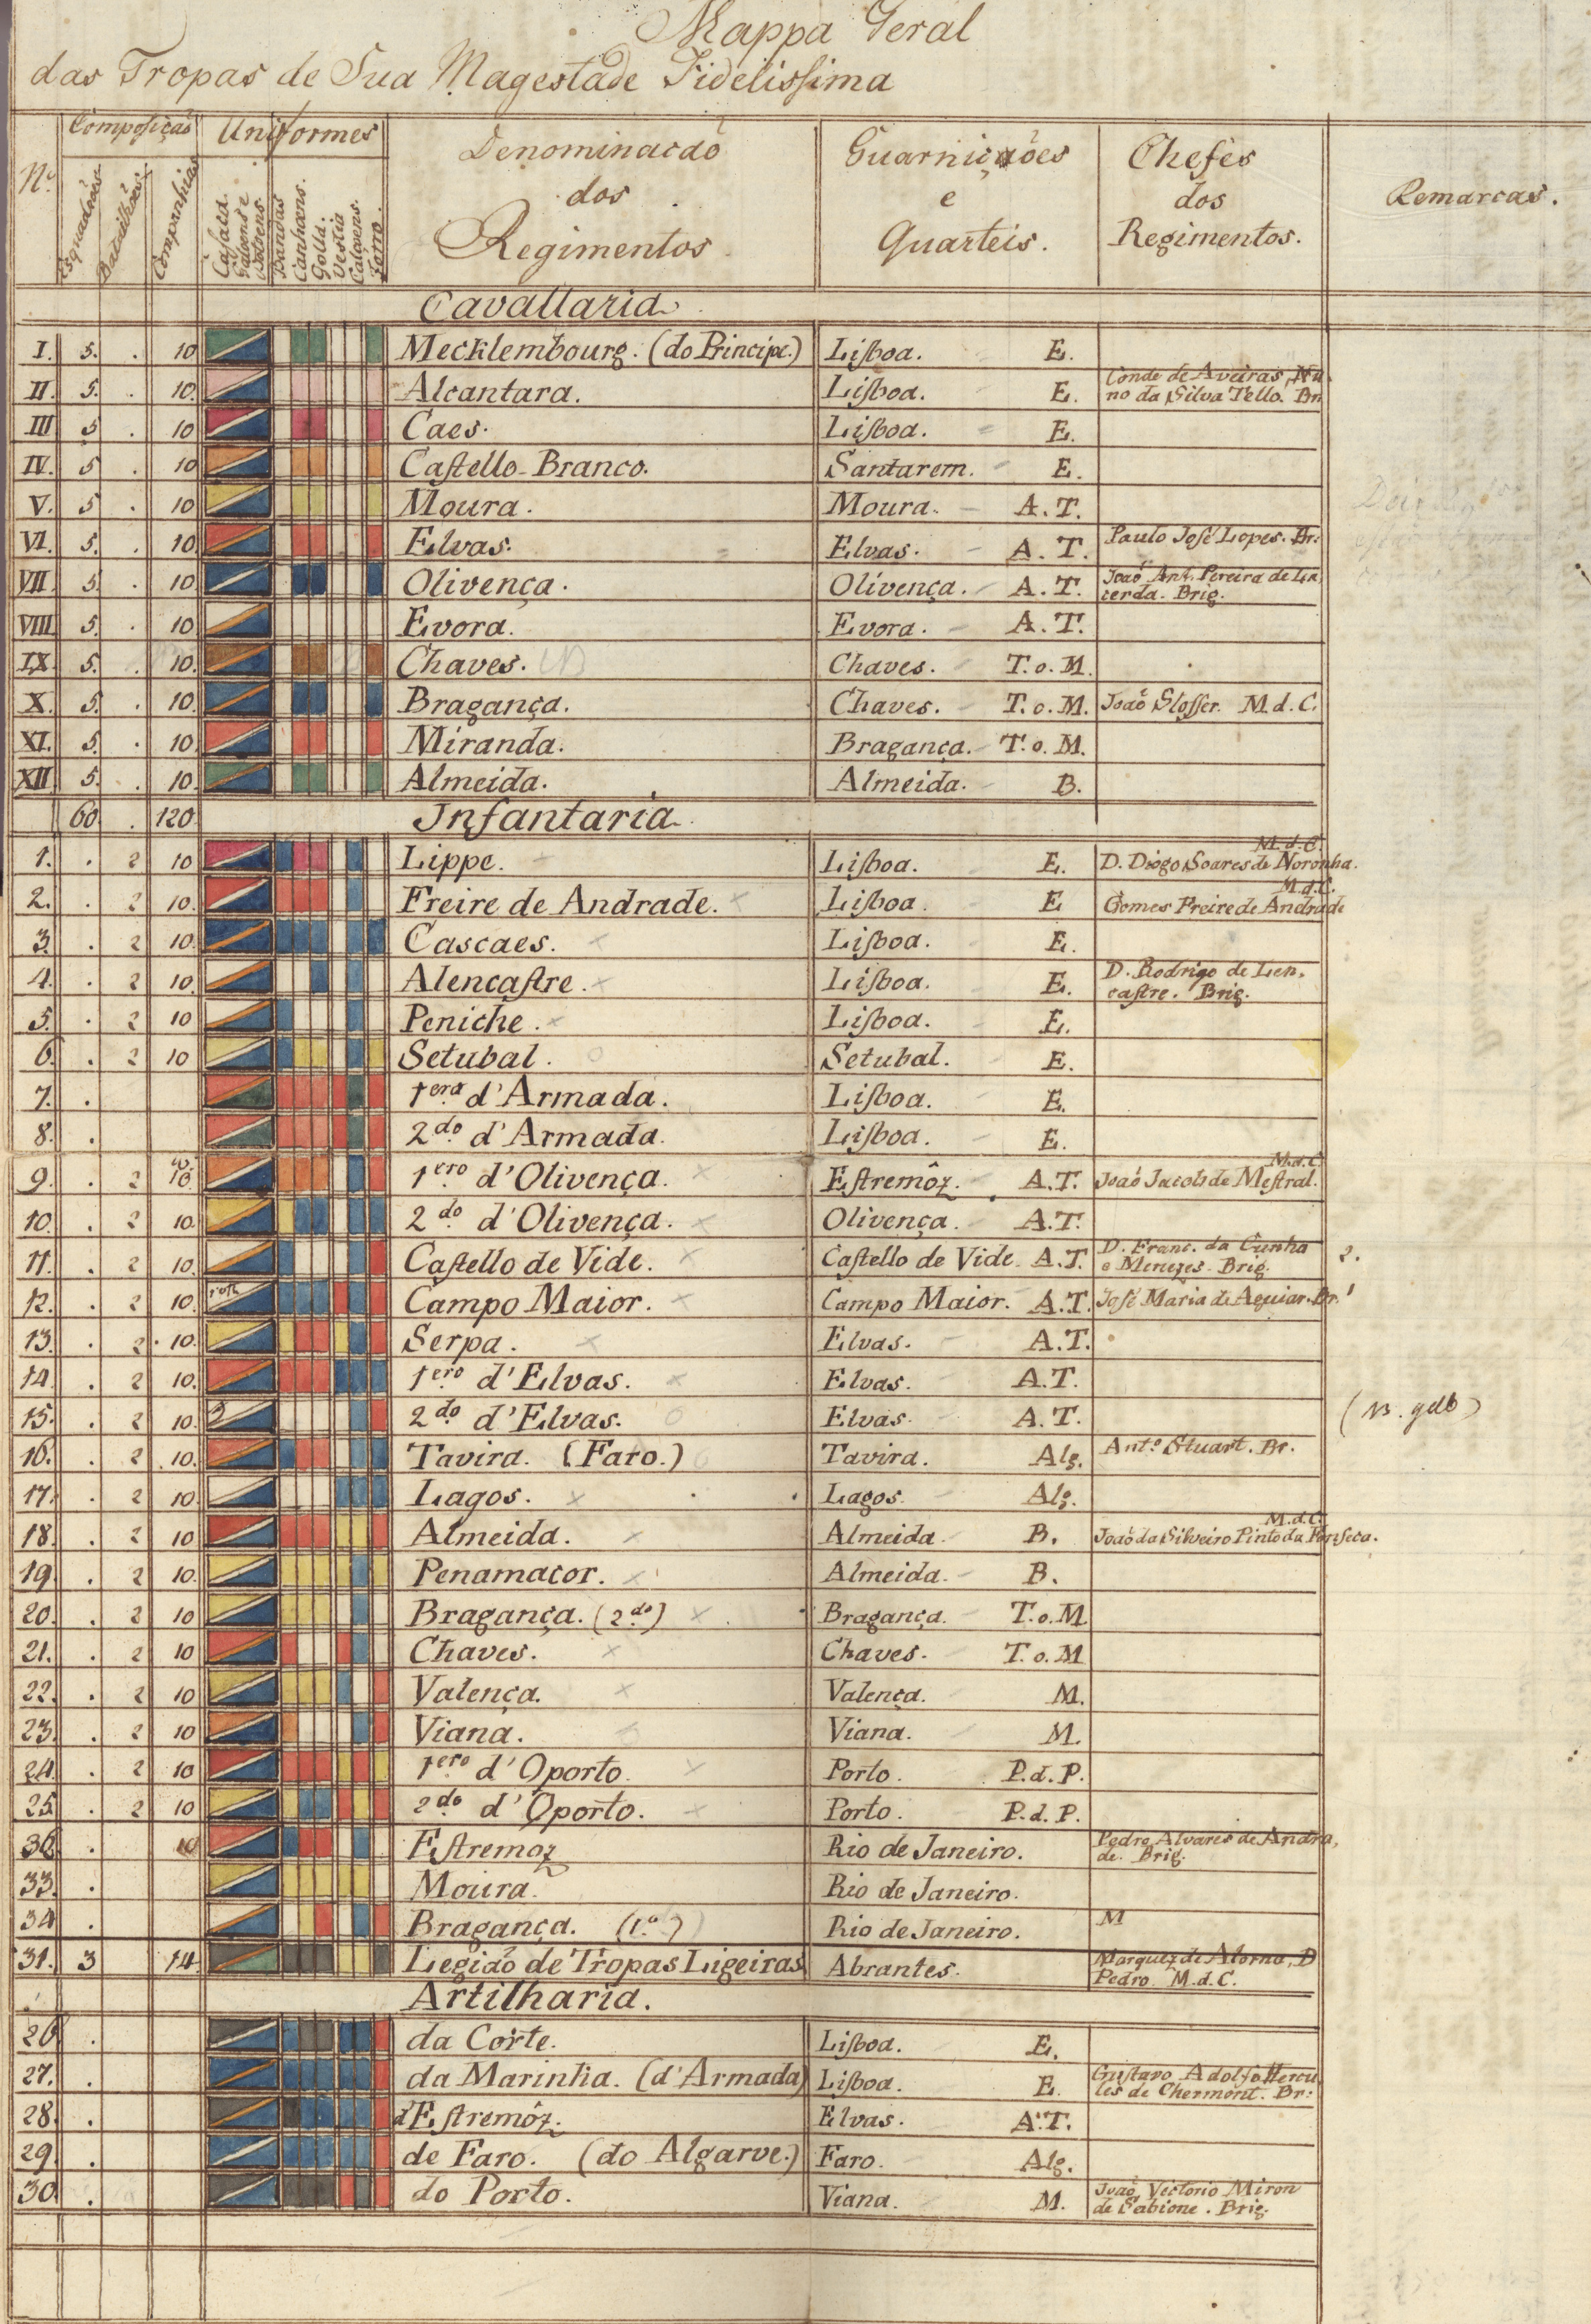 Mappa Geral
das Tropas de Sua Magestade Fidelissima
Nº. Composiçaõ Uniformes Denominacaõ dos Regimentos Guarniçaões e Quarteis. Chefes dos Regimentos. Remarcas.
Esquadroẽs. Batailhoẽs. Companhias. Casaca. Galoens e Botoens. Banvas Canhoens. Golla. Vestia Calçoens. Forro.
Cavallaria
I. 5. . 10 Mecklembourg. (do Principe.) Lisboa. E.
II. 5. . 10. Alcantara. Lisboa. E. Conde de Aveiras, Nu
no da Silva Tello. Br
III 5 . 10 Caes. Lisboa. E.
IV. 5 . 10 Castello-Branco. Santarem. E.
V. 5 . 10 Moura. Moura. A.T.
VI. 5. . 10. Elvas. Elvas. A.T. Paulo José Lopes. Br.
VII 5 . 10 Olivença. Olivença. A.T. Joaõ Ant. Pereira de La
cerda. Brig.
VIII 5. . 10 Evora. Evora. A.T.
IX. 5. . 10. Chaves. Chaves. T.o.M.
X. 5. . 10. Bragança. Chaves. T.o.M. Joaõ Slosser. M.d.C.
XI. 5. . 10 Miranda. Bragança. T.o.M.
XII 5. . 10 Almeida. Almeida. B.
60. . 120 Infantaria
1. . 2 10 Lippe. Lisboa. E. M.d.C.
D. Diogo Soares de Noronha.
2. . 2 10. Freire de Andrade. Lisboa. E M.d.C.
Gomes Freire de Andrade
3. . 2 10. Cascaes. Lisboa. E.
4. . 2 10. Alencastre. Lisboa. E. D. Rodrigo de Len,
castre. Brig.
5. . 2 10 Peniche. Lisboa. E.
6. . 2 10 Setubal. Setubal. E.
7. . 1era d'Armada. Lisboa. E.
8. . 2do. d'Armada. Lisboa. E.
9. . 2 10. 1ero d'Olivença. Estremôz. A.T. M.d.C
Joaõ Jacob de Mestral.
10. . 2 10. 2do. d'Olivença. Olivença. A.T.
11. . 2 10. Castello de Vide. Castello de Vide. A.T. D. Franc. da Cunha
e Menezes. Brig. 2.
12. . 2 10. roth Campo Maior. Campo Maior. A.T. José Maria de Aguiar. Br. 1
13. . 2. 10. Serpa. Elvas. A.T.
14 . 2 10. 1ero d'Elvas. Elvas. A.T.
15. . 2 10. 2do. d'Elvas. Elvas. A.T. (13. gelb)
16. . 2 10. Tavira. (Faro.) Tavira. Alg. Antº Stuart. Br.
17. . 2 10. Lagos. Lagos. Alg.
18. . 2 10 Almeida. Almeida. B. M.d.C.
Joaõ da Silveiro Pinto da Fonseca.
19. . 2 10. Penamacor. Almeida. B.
20. . 2 10 Bragança. (2.do) Bragança. T.o.M.
21. . 2 10 Chaves. Chaves. T.o.M
22. . 2 10 Valença. Valença. M.
23. . 2 10 Viana. Viana. M.
24. . 2 10 1ero d'Oporto. Porto. P.d.P.
25. . 2 10 2do. d'Oporto. Porto. P.d.P.
32. . 10 Estremoz Rio de Janeiro. Pedro Alvares de Andra,
de. Brig.
33. . Moura. Rio de Janeiro.
34 . Bragança. (1.º) Rio de Janeiro. M
31. 3 14. Legiaõ de Tropas Ligeiras Abrantes. Marquez de Alorna, D
Pedro. M.d.C.
Artilharia.
26 . da Corte. Lisboa. E.
27. . da Marinha. (d'Armada) Lisboa. E. Gustavo Adolfo Hercu
les de Chermont. Br:
28. . d'Estremôz. Elvas. A.T.
29. . de Faro. (do Algarve.) Faro. Alg.
30. . do Porto. Viana. M. Joaõ Victorio Miron
de Sabione. Brig.